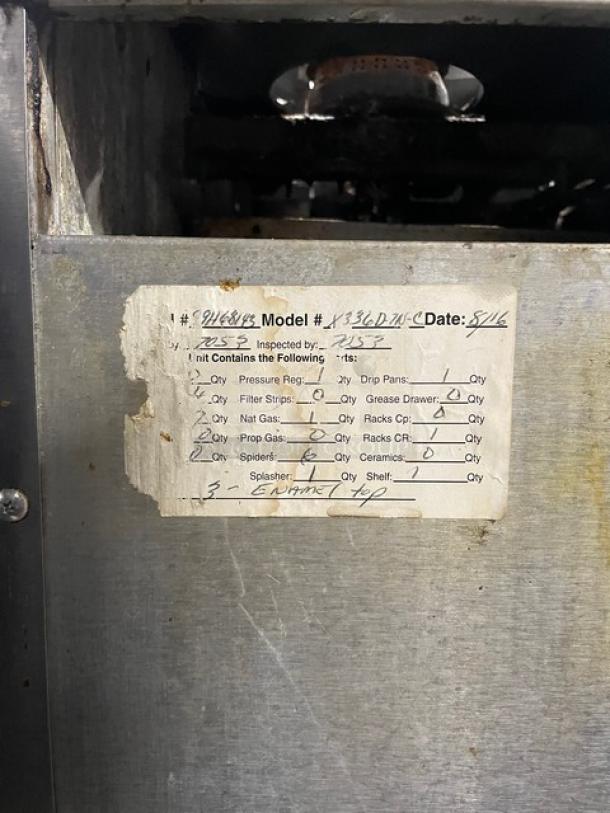 # 99H68193 Model # X336D-7N-C Date: 8/16
7053 Inspected by: 7053
Unit Contains the Following
Qty Pressure Reg: 1 Qty Drip Pans: 1 Qty
4 Qty Filter Strips: 0 Qty Grease Drawer: 0 Qty
Qty Nat Gas: 1 Qty Racks Cp: 0 Qty
0 Qty Prop Gas: 0 Qty Racks CR: 1 Qty
0 Qty Spiders: 6 Qty Ceramics: 0 Qty
Splasher: 1 Qty Shelf: 1 Qty
3 - ENAMEL top